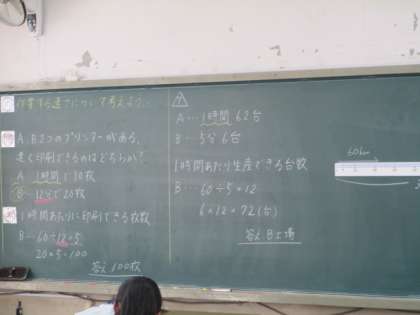 作業する速さについて考えよう。
A、B2つのプリンターがある。
速く印刷できるのはどちらか?
A 1時間で10枚
B…12分で20枚
1時間あたりに印刷できる枚数
B…60÷12=5
20×5=100
答え 100枚
7
A…1時間 62台
B…5分 6台
1時間あたり生産できる台数
B…60÷5=12
6×12=72(台)
答え B工場
60km